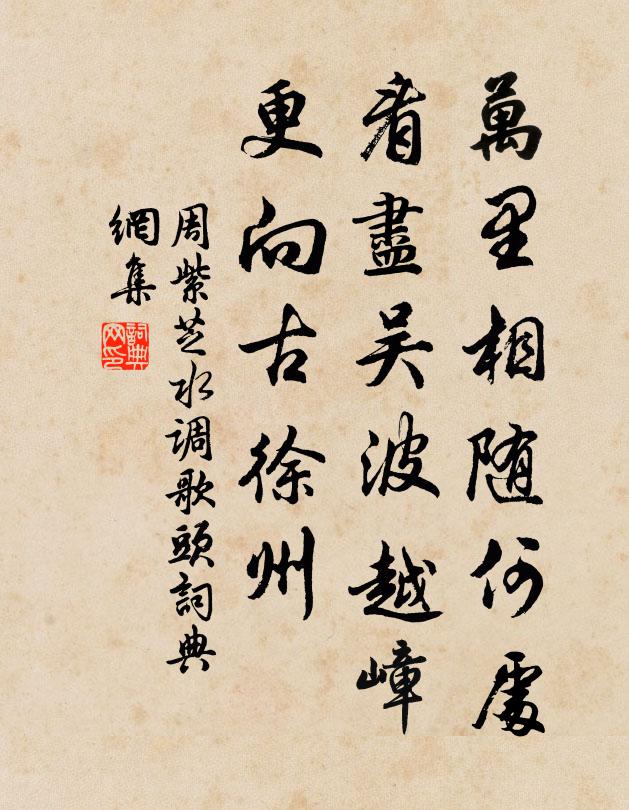 萬里相随何處
看盡吴波越嶂
更向古徐州
周紫芝水调歌頭詞典
網集
詞典網印